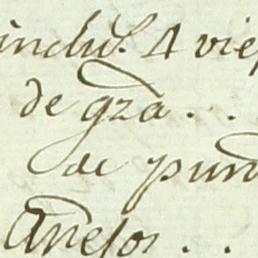 inclus. 4 viej
de gza...
de pun
Anejos..